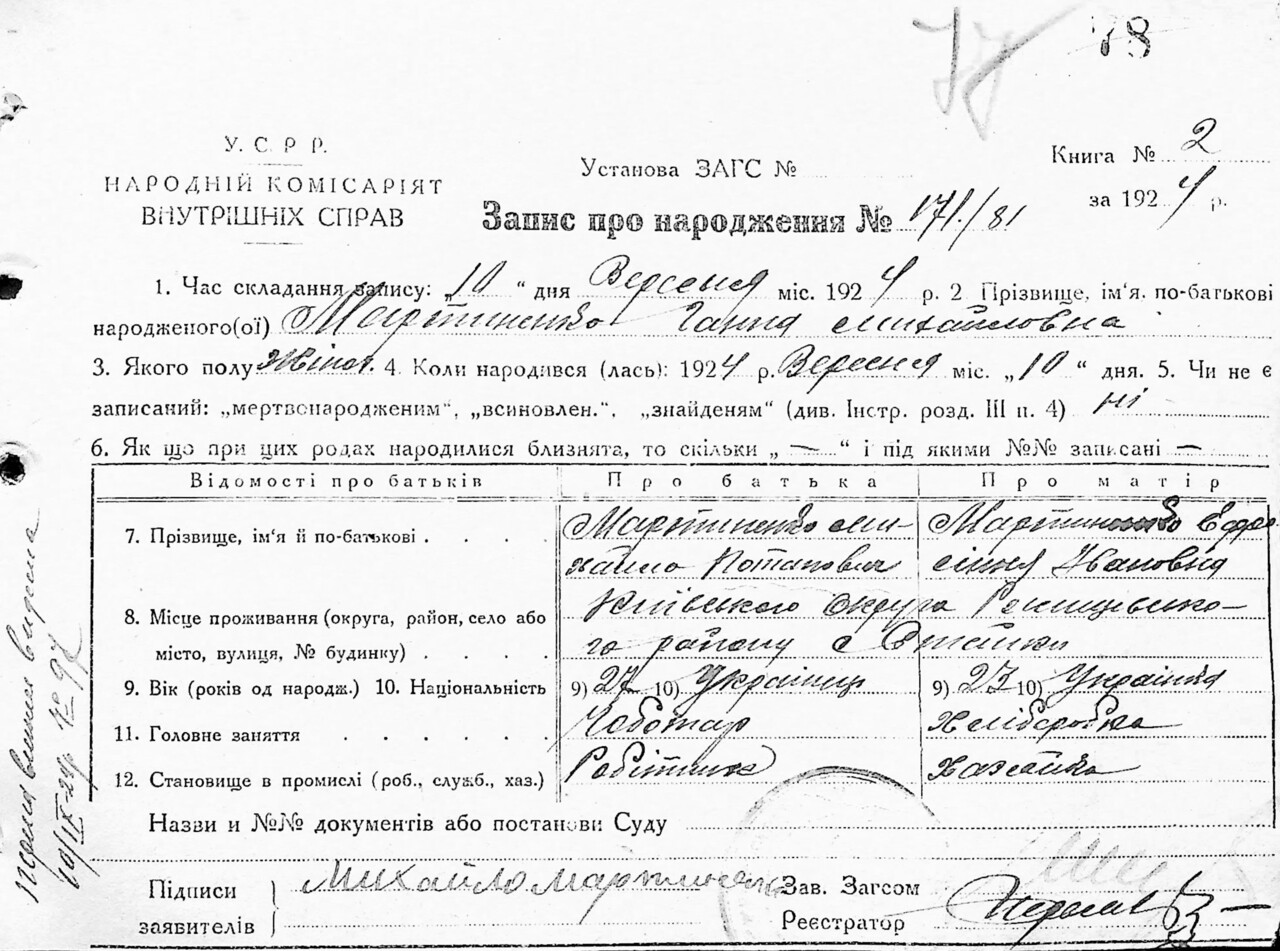 78
У. С. Р. Р.
НАРОДНІЙ КОМІСАРІЯТ
ВНУТРІШНІХ СПРАВ
Установа ЗАГС №
Книга № 2
за 1924 р.
Запис про народження № 171/81
1. Час складання запису: „10“ дня Вересня міс. 1924 р. 2 Прізвище, ім'я, по-батькові
народженого(ої) Мартиненко Ганна Михайловна
3. Якого полу жіноч. 4. Коли народився (лась): 1924 р. Вересня міс. „10“ дня. 5. Чи не є
записаний: „мертвонародженим“, „всиновлен.“, „знайденям“ (див. Інстр. розд. III п. 4) ні
6. Як що при цих родах народилися близнята, то скільки „—“ і під якими №№ записані —
Відомості про батьків Про батька Про матір
7. Прізвище, ім'я й по-батькові Мартиненко Ми- Мартиненко Евфро
хайло Потапович сіння Ивановна
8. Місце проживання (округа, район, село або Київського Округа Ржищівсько-
місто, вулиця, № будинку) го району с Стайки
9. Вік (років од народж.) 10. Національність 9) 27 10) Українець 9) 23 10) Українка
11. Головне заняття Чоботар Хліборобка
12. Становище в промислі (роб., служб., хаз.) Робітник Хазяйка
Назви и №№ документів або постанови Суду
Підписи
заявителів
Михайло Мартиненко
Зав. Загсом
Реєстратор
10/IX-24р.